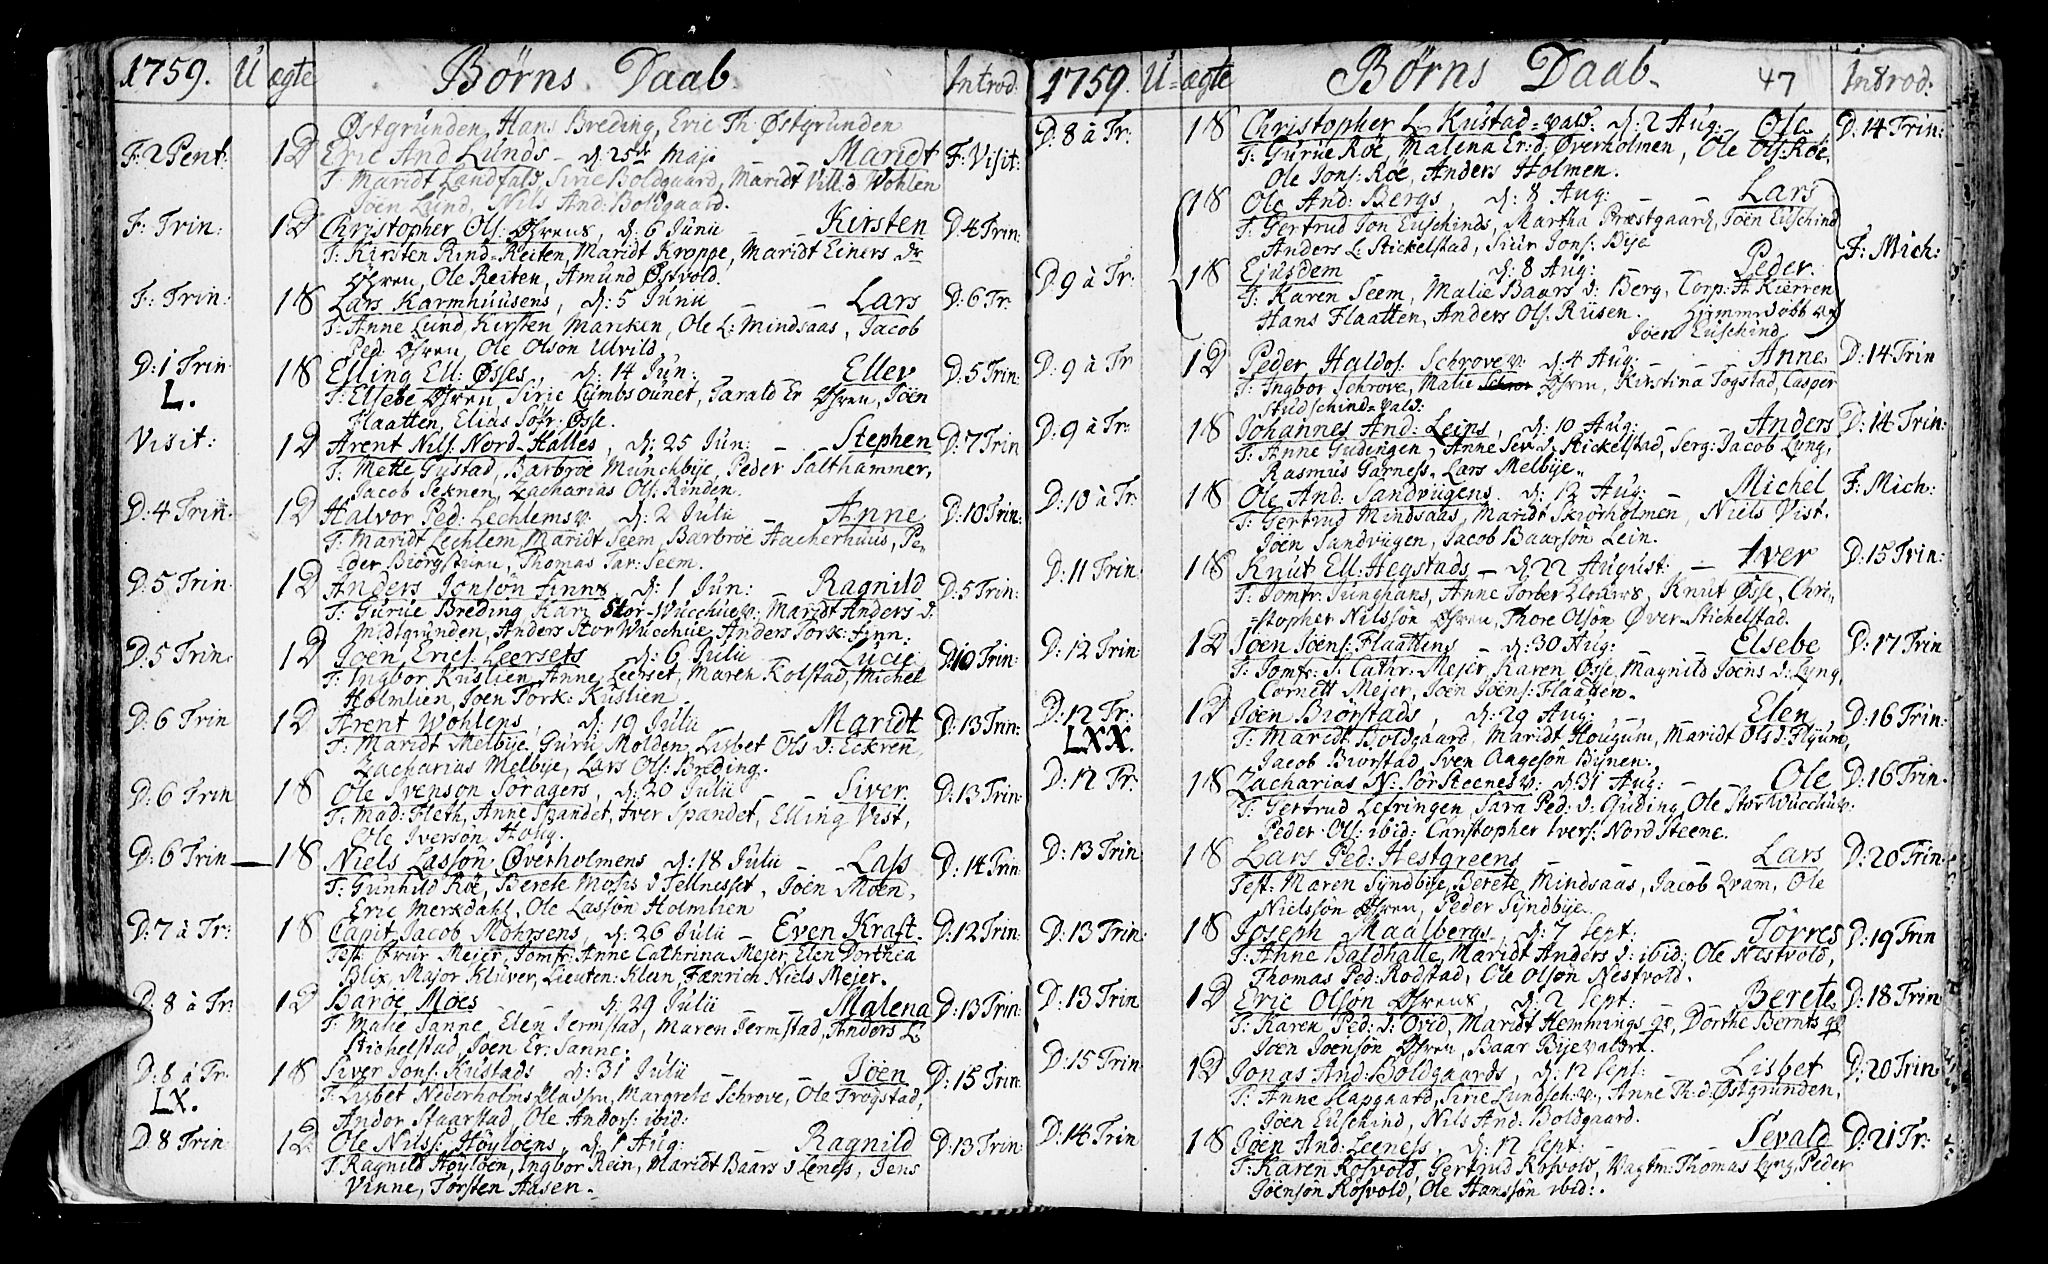 1759. U ægte Børns Daab. Introd.
Østgrunden, Hans Breding, Eric Th: Østgrunden
F: 2 Pent: 1 D Eric And Lunds – d: 25de Maji – – Maridt F: Visit:
T: Maridt Landfald, Sirie Boldgaard, Maridt Vill: d. Wohlen
Joen Lund, Nils And: Boldgaard.
F: Trin: 1 D Christopher Ols: Øhrens, d: 6 Junii – – Kirsten D: 4 Trin:
T: Kirsten Rind-Reiten, Maridt Kroppe, Maridt Einers dr
Øhren, Ole Reiten, Amund Østvold.
F: Trin: 1 S Lars Karmhuusens, d: 5 Junii – – Lars D: 6 Tr.
T: Anne Lund, Kirsten Marcken, Ole L: Mindsaas, Jacob
Ped: Øhren, Ole Olson Ulvild.
D: 1 Trin 1 S Elling Ell: Øsses, d: 14 Jun: – – Ellev D: 5 Trin:
L.
T: Elsebe Øhren, Sirie Lumbsounet, Tarald Er Øhren, Joen
Flaatten, Elias Söfr: Øsse.
Visit: 1 D Arent Nils: Nord-Halles, d: 25 Jun: – Stephen D: 7 Trin
T: Mette Gustad, Barbroe Munchbije, Peder Salthammer,
Jacob Seknen, Zacharias Ols: Rinden.
D: 4 Trin 1 D Halvor Ped: Lechlems v. d: 2 Julii – Anne D: 10 Trin:
T: Maridt Lechlem, Maridt Seem, Barbroe Hackerhuus, Pe-
der Biörgsturn, Thomas Tar: Seem.
D: 5 Trin: 1 D Anders Jonsön Finns, d: 1 Jun: – Ragnild D: 5 Trin:
T: Gurue Breding, Kari Stor-Wucchue v: Maridt Anders d:
Midtgrunden, Anders Stor Wucchue, Anders Tork: Finn.
D: 5 Trin: 1 D Joen Erics: Leersets d: 6 Julii – Lucie D: 10 Trin:
T: Ingbor Kuslien, Anne Leerset, Maren Kolstad, Michel
Holmlien, Joen Tork: Kuslien
D: 6 Trin 1 D Arent Wohlens, d: 19 Julii – – Maridt D: 13 Trin:
T: Maridt Melbije, Guru Molden, Lisbet Ols d: Eckren,
Zacharias Melbije, Lars Ols: Breding.
D: 6 Trin 1 S Ole Svenson Soragers, d: 20 Julii – Siver D: 13 Trin:
T: Mad: Fleth, Anne Spandet, Iver Spandet, Elling Vist,
Ole Iverson Houg.
D: 6 Trin 1 S Niels Lassön Øverholmens d: 18 Julii – Lass D: 14 Trin:
T: Gunhild Röe, Berete Mosis d Tellnesset, Joen Moen,
Eric Merkdahl, Ole Lassön Holmlien
D: 7 à Tr: 1 S Capit. Jacob Mohrsens, d: 26 Julii – Even Kraft. D: 12 Trin:
Test: Mejer, Jomfr: Anne Cathrina Mejer, Elen Dorthea
Blix, Major Klüver, Lieuten: Klein Fænrich Niels Mejer.
D: 8 à Tr: 1 D Baroe Moes – d: 29 Julii – – Malena D: 13 Trin:
T: Malie Sanne, Elen Jermstad, Maren Jermstad, Anders L:
Stichelstad, Joen Er: Sanne.
D: 8 à Tr. 1 S Siver Jons: Kustads d: 31 Julii – – Jöen D: 15 Trin:
LX.
T: Lisbet Nederholms Pladsen, Margrete Schrove, Ole Trogstad,
Andor Staarstad, Ole Andors: ibid:
D: 8 Trin: 1 D Ole Nilss: Höylöens, d: 1 Aug: – Ragnild D: 13 Trin:
T: Ragnild Höylöen, Ingbor Rein, Maridt Baars d Leness, Jens
Vinne, Torsten Aasen.
1759. U- ægte Børns Daab. 47 Introd:
D: 8 à Tr: 1 S Christopher L Kustad-vald. d: 2 Aug: Ole, D: 14 Trin:
T: Gurue Röe, Malena Er: d: Øverholmen, Ole Ols: Röe,
Ole Jons: Röe, Anders Holmen.
1 S Ole And: Bergs, d: 8 Aug: – – Lars
T: Gertrud Jon Euschinds, Martha Præstgaard, Joen Euschind
Anders L: Stickelstad, Siur Jons: Bije
F: Mich:
D: 9 à Tr: 1 S Ejusdem d: 8 Aug: Peder.
T: Karen Seem, Malie Baars d: Berg, Corp: A Kierren
Hans Flaatten, Anders Ols: Riisen.
Joen Euschind
D: 9 à Tr 1 D Peder Haldos: Schrove v: d: 4 Aug: – – Anne D: 14 Trin
T: Ingbor Schrove, Malie Øhren, Kirstina Togstad, Casper
Studschind-vald:
D: 9 à Tr: 1 S Johannes And: Leins, d: 10 Aug: – Anders D: 14 Trin:
T: Anne Gudingen, Anne Sev: d: Stickelstad, Serg: Jacob Lyng,
Rasmus Garness, Lars Melbije.
D: 10 à Tr 1 S Ole And: Sandvügens. d: 12 Aug: – Michel F: Mich:
T: Gertrud Mindsaas, Maridt Skiörholmen, Niels Vist.
Jöen Sandvügen, Jacob Baarsön Lein.
D: 11 Trin: 1 S Knut Ell: Hegstads – d: 22 August: – Iver D: 15 Trin:
T: Jomfr: Junghans, Anne Torber, Knut Øsse, Chri-
stopher Nilssön Øhren, Thore Olsön Øver-Stichelstad.
D: 12 Trin 1 D Joen Joens: Flaattens – d: 30 Aug: – Elsebe D: 17 Trin
T: Jomfr: S: Cathr: Mejer, Karen Øsse, Magnild Joens d: Lyng,
Cornett Mejer, Joen Joens: Flaatten.
D: 12 Tr: 1 D Joen Biörstads, d: 29 Aug: – – Elen D: 16 Trin:
LXX.
T: Maridt Boldgaard, Maridt Hougum, Maridt Ols d: Flyum,
Jacob Biorstad, Sven Aagesön Bijnen.
D: 12 Tr. 1 S Zacharias N: Sör Steenes v: d: 31 Aug: – – Ole D: 16 Trin.
T: Gertrud Lefringen, Sara Ped: d: Guding, Ole Stor Wucchu v:
Peder Ols: ibid: Christopher Ivers: Nord Steene.
D: 13 Trin 1 S Lars Ped: Hestgreens – – Lars D: 20 Trin
Test: Maren Syndbije, Berete Mindsaas, Jacob Qvam, Ole
Nielssön Øhren, Peder Syndbije.
D: 13 Trin: 1 S Joseph Maalbergs, d: 7 Sept: Törres D: 19 Trin
T: Anne Baldhalle, Maridt Anders d: ibid: Ole Nestvold,
Thomas Ped: Rodstad, Ole Olsön Nestvold.
D: 13 Trin 1 D Eric Olson Øhrens, d: 2 Sept: – – Berete. D: 18 Trin
T: Karen Ped: d: Ovid, Maridt Hemmings qv, Dorthe Bernts qv
Joen Joensön Øhren, Baar Bijevaldet.
D: 15 Trin 1 D Jonas And: Boldgaards, d: 12 Sept: – Lisbet D: 20 Trin
T: Anne Slapgaard, Sirie Lundsch: v:, Anne Th: d: Østgrunden,
Jöen Euschind, Nils And: Boldgaard.
D: 14 Trin 1 S Jöen And: Leeness, d: 12 Sept: – – Sevald D: 21 Tr:
T: Karen Rosvold, Gertrud Rosvold, Vagtm: Thomas Lyng, Peder
Joensön Rosvold, Ole Hanssön ibid:.